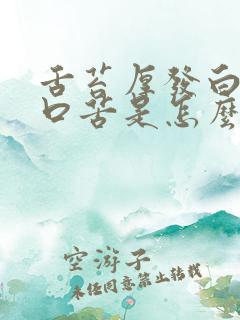 舌苔厚發白
口苦是怎麼
空游子
未经同意禁止转载